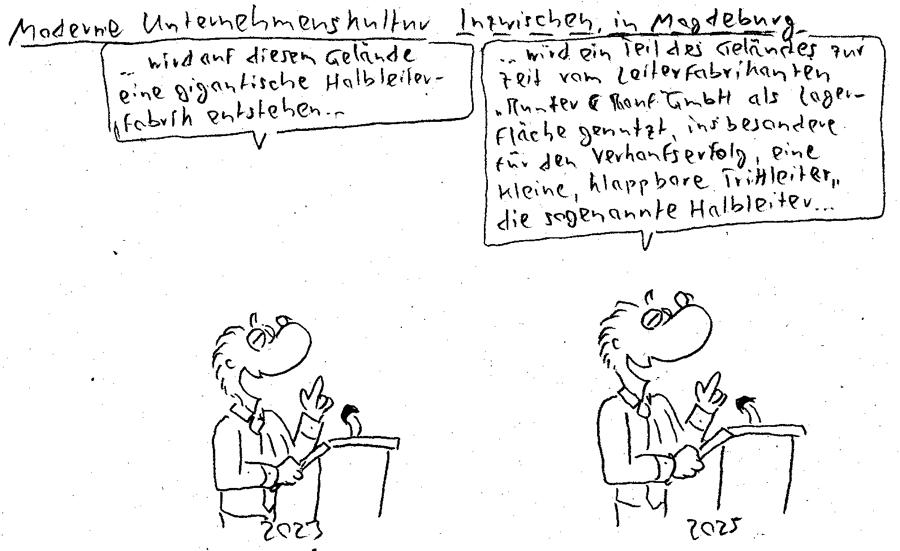 Moderne Unternehmenskultur Inzwischen, in Magdeburg
... wird auf diesem Gelände
eine gigantische Halbleiter-
fabrik entstehen...
... wird ein Teil des Geländes zur
Zeit vom Leiterfabrikanten
"Runter & Rauf" GmbH als Lager-
fläche genutzt, insbesondere
für den Verkaufserfolg, eine
kleine, klappbare Trittleiter,
die sogenannte Halbleiter...
2023
2025